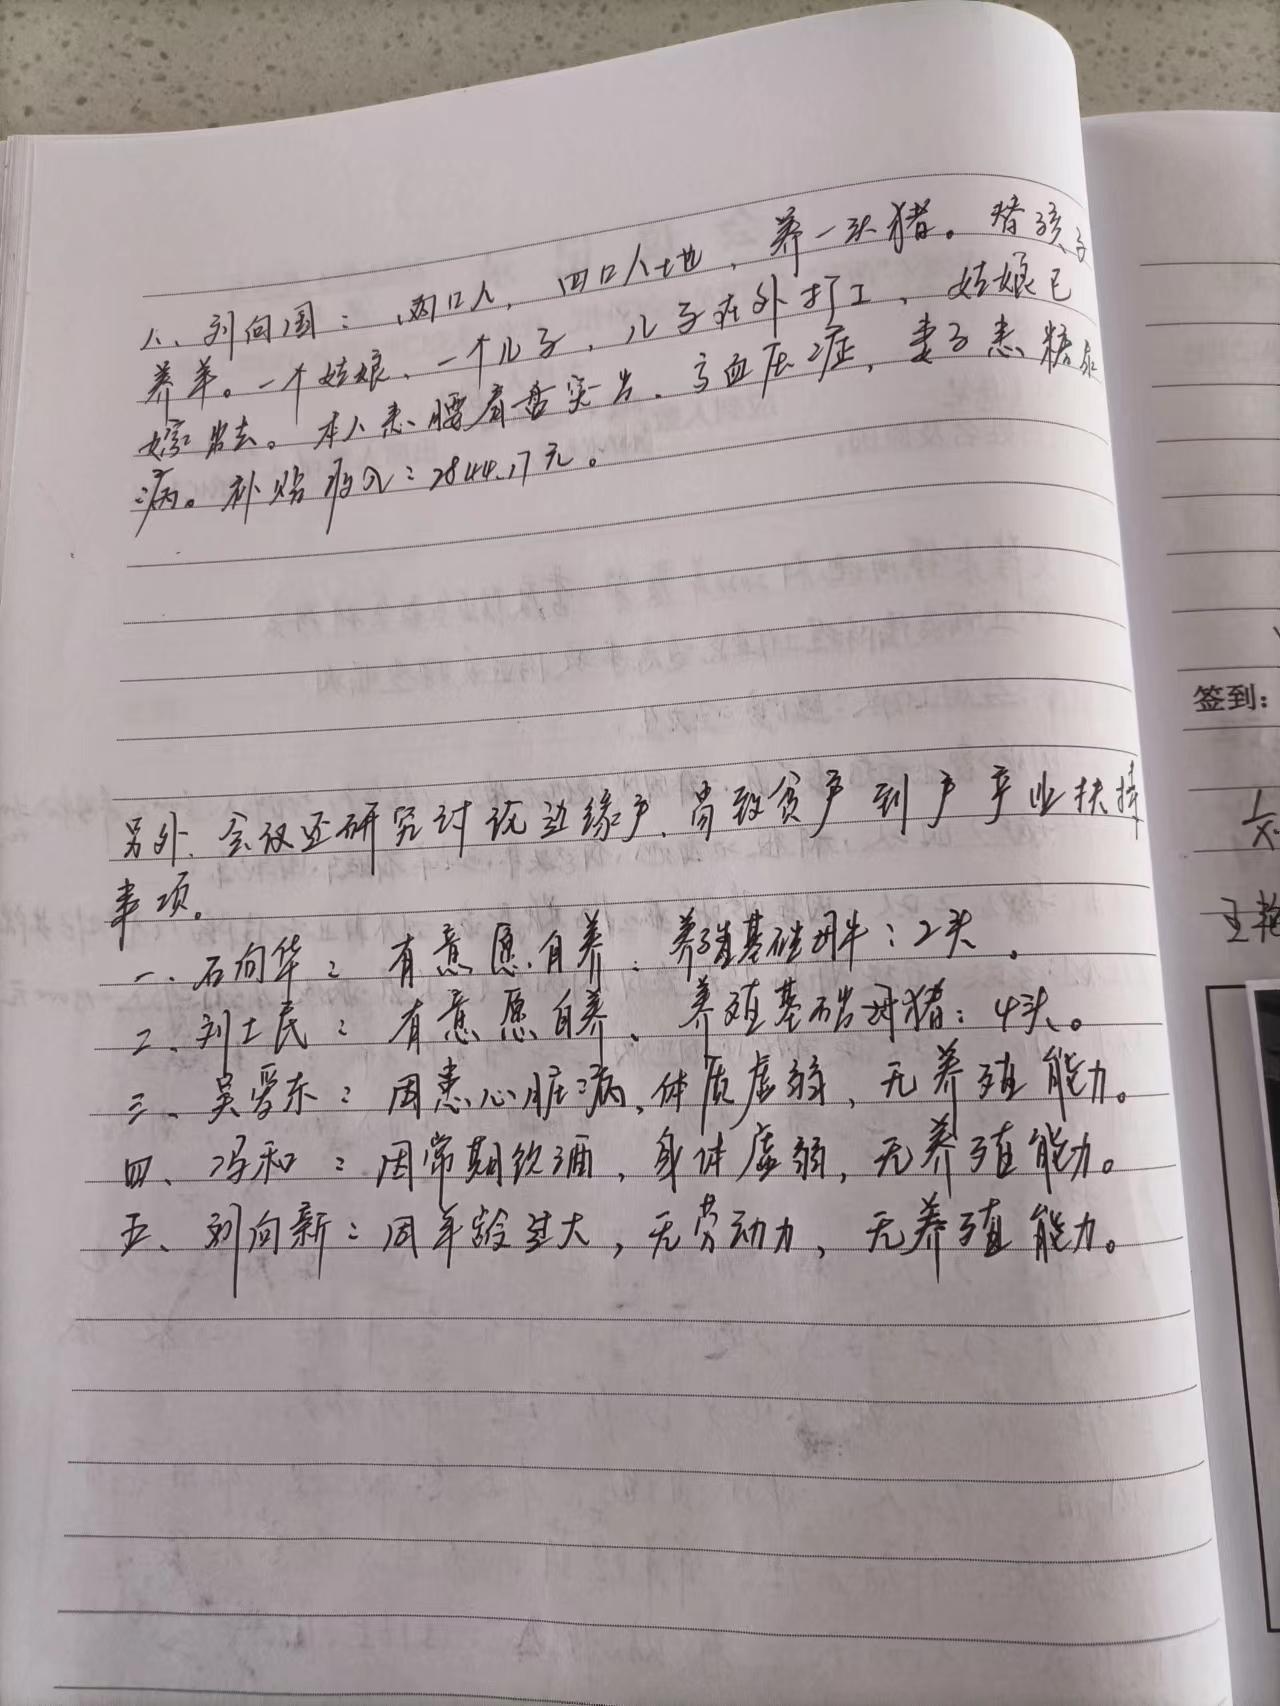 八、刘向国：两口人，四口人土地，养一头猪。替孩子
养羊。一个姑娘、一个儿子，儿子在外打工，姑娘已
嫁出去。本人患腰肩盘突出、高血压症，妻子患糖尿
病。补贴收入：2844.17元。
另外，会议还研究讨论边缘户、易致贫户到户产业扶持
事项。
一、石向华：有意愿自养、养殖基础母牛：2头。
二、刘士民：有意愿自养、养殖基础母猪：4头。
三、吴爱东：因患心脏病，体质虚弱，无养殖能力。
四、冯和：因常期饮酒，身体虚弱，无养殖能力。
五、刘向新：因年龄过大，无劳动力，无养殖能力。
签到：